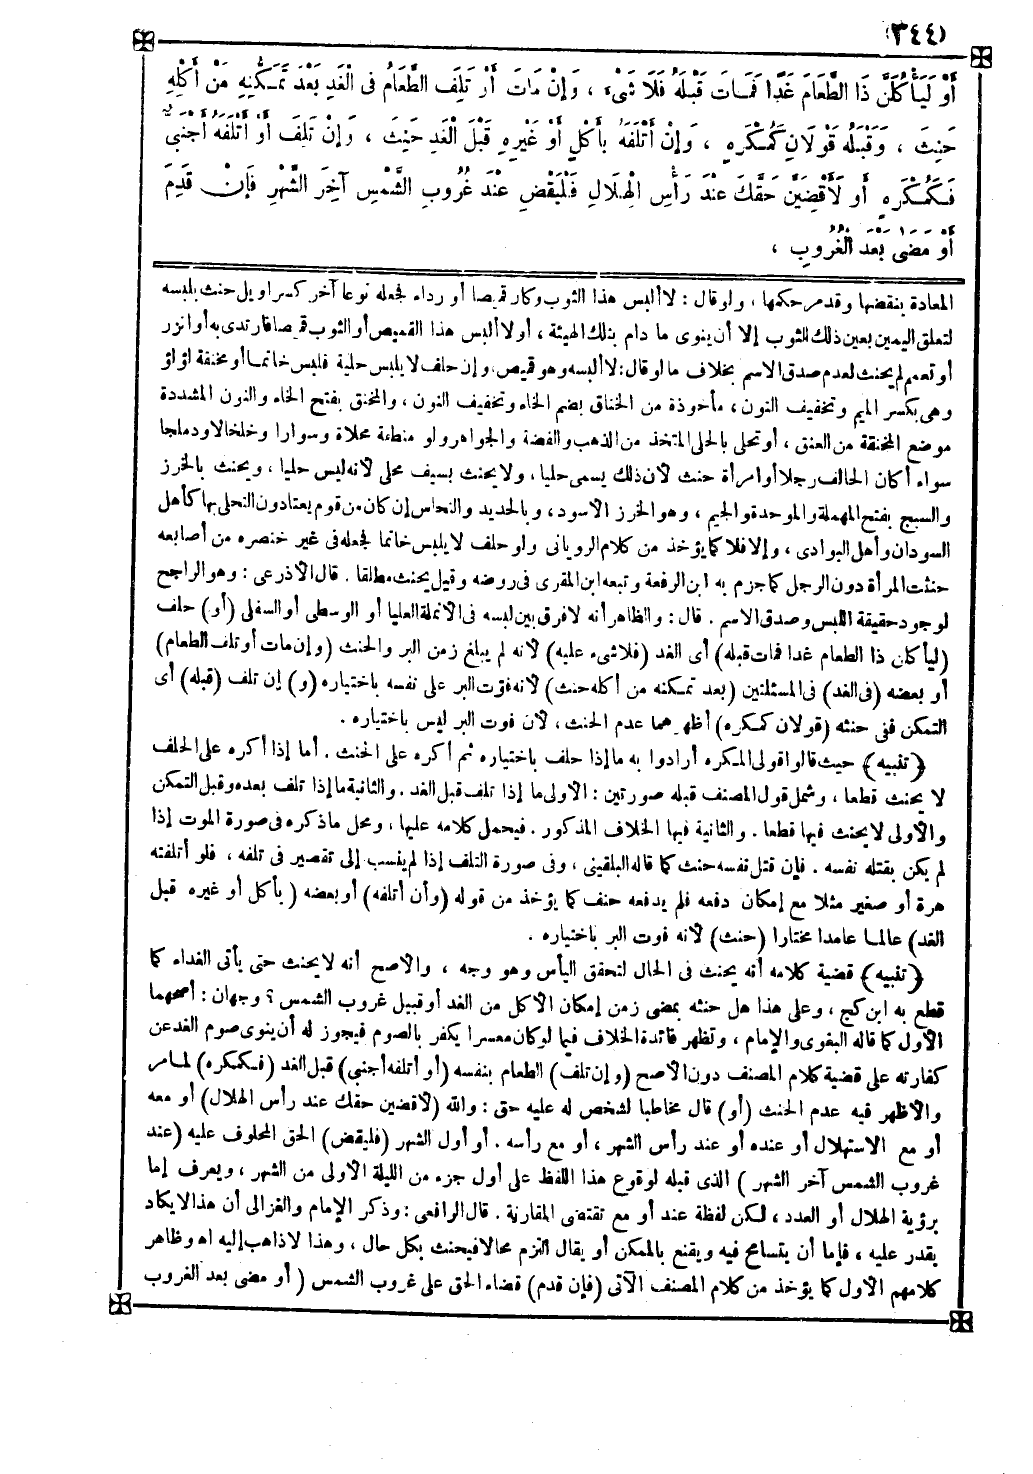 (٣٤٤)
أَوْ لَيَأْكُلَنَّ ذَا الطَّعَامَ غَدًا فَمَاتَ قَبْلَهُ فَلَا شَيْءَ ، وَإِنْ مَاتَ أَوْ تَلِفَ الطَّعَامُ فِى الْغَدِ بَعْدَ تَمَكُّنِهِ مِنْ أَكْلِهِ
حَنِثَ ، وَقَبْلَهُ قَوْلَانِ كَمُكْرَهٍ ، وَإِنْ أَتْلَفَهُ بِأَكْلٍ أَوْ غَيْرِهِ قَبْلَ الْغَدِ حَنِثَ ، وَإِنْ تَلِفَ أَوْ أَتْلَفَهُ أَجْنَبِىٌّ
فَكَمُكْرَهٍ أَو لَأَقْضِيَنَّ حَقَّكَ عِنْدَ رَأْسِ الْهِلَالِ فَلْيَقْضِ عِنْدَ غُرُوبِ الشَّمْسِ آخِرَ الشَّهْرِ فَإِنْ قَدَّمَ
أَوْ مَضَى بَعْدَ الْغُرُوبِ ،
المعادة بنقضها وقد مر حكمها ، ولو قال : لا ألبس هذا الثوب وكان قميصا أو رداء فجعله نوعا آخر كسراويل حنث بلبسه
لتعلق اليمين بعين ذلك الثوب إلا أن ينوى ما دام بتلك الهيئة ، أو لا ألبس هذا القميص أو الثوب قميصا فارتدى به أو اتزر
أو تعمم لم يحنث لعدم صدق الاسم بخلاف ما لو قال : لا ألبسه وهو قميص ، وإن حلف لا يلبس حلية فلبس خاتما أو مخنقة لؤلؤ
وهى بكسر الميم وتخفيف النون ، مأخوذة من الخناق بضم الخاء وتخفيف النون ، والمخنق بفتح الخاء والنون المشددة
موضع المخنقة من العنق ، أو تحلى بالحلى المتخذ من الذهب والفضة والجواهر ولو منطقة محلاة وسوارا وخلخالا ودملجا
سواء أكان الحالف رجلا أو امرأة حنث لأن ذلك يسمى حليا ، ولا يحنث بسيف محلى لأنه ليس حليا ، ويحنث بالخرز
والسبج بفتح المهملة والموحدة والجيم ، وهو الخرز الأسود ، وبالحديد والنحاس إن كان من قوم يعتادون التحلى بها كأهل
السودان وأهل البوادى ، وإلا فلا كما يؤخذ من كلام الرويانى ولو حلف لا يلبس خاتما فجعله فى غير خنصره من أصابعه
حنثت المرأة دون الرجل كما جزم به ابن الرفعة وتبعه ابن المقرى فى روضه وقيل يحنث مطلقا . قال الأذرعى : وهو الراجح
لوجود حقيقة اللبس وصدق الاسم . قال : والظاهر أنه لا فرق بين لبسه فى الأنملة العليا أو الوسطى أو السفلى (أو) حلف
(ليأكلن ذا الطعام غدا فمات قبله) أى الغد (فلا شىء عليه) لأنه لم يبلغ زمن البر والحنث (وإن مات أو تلف الطعام)
أو بعضه (فى الغد) فى المسئلتين (بعد تمكنه من أكله حنث) لأنه فوت البر على نفسه باختياره (و) إن تلف (قبله) أى
التمكن ففى حنثه (قولان كمكره) أظهرهما عدم الحنث ، لأن فوت البر ليس باختياره .
﴿ تنبيه ﴾ حيث قالوا قولى المكره أرادوا به ما إذا حلف باختياره ثم أكره على الحنث . أما إذا أكره على الحلف
لا يحنث قطعا ، وشمل قول المصنف قبله صورتين : الأولى ما إذا تلف قبل الغد . والثانية ما إذا تلف بعده وقبل التمكن
والأولى لا يحنث فيها قطعا . والثانية فيها الخلاف المذكور . فيحمل كلامه عليها ، ومحل ما ذكره فى صورة الموت إذا
لم يكن بقتله نفسه . فإن قتل نفسه حنث كما قاله البلقينى ، وفى صورة التلف إذا لم ينسب إلى تقصير فى تلفه ، فلو أتلفته
هرة أو صغير مثلا مع إمكان دفعه فلم يدفعه حنث كما يؤخذ من قوله (وأن أتلفه) أو بعضه ( بأكل أو غيره قبل
الغد) عالما عامدا مختارا (حنث) لأنه فوت البر باختياره .
﴿ تنبيه ﴾ قضية كلامه أنه يحنث فى الحال لتحقق اليأس وهو وجه ، والأصح أنه لا يحنث حتى يأتى الغداء كما
قطع به ابن كج ، وعلى هذا هل حنثه بمضى زمن إمكان الأكل من الغد أو قبيل غروب الشمس ؟ وجهان : أصحهما
الأول كما قاله البغوى والإمام ، وتظهر فائدة الخلاف فيما لو كان معسرا يكفر بالصوم فيجوز له أن ينوى صوم الغد عن
كفارته على قضية كلام المصنف دون الأصح (وإن تلف) الطعام بنفسه (أو أتلفه أجنبى) قبل الغد (فكمكره) لما مر
والأظهر فيه عدم الحنث (أو) قال مخاطبا لشخص له عليه حق : والله (لأقضين حقك عند رأس الهلال) أو معه
أو مع الاستهلال أو عنده أو عند رأس الشهر ، أو مع رأسه . أو أول الشهر (فليقض) الحق المحلوف عليه (عند
غروب الشمس آخر الشهر ) الذى قبله لوقوع هذا اللفظ على أول جزء من الليلة الأولى من الشهر ، ويعرف إما
برؤية الهلال أو العدد ، لكن لفظة عند أو مع تقتضى المقارنة . قال الرافعى : وذكر الإمام والغزالى أن هذا لا يكاد
يقدر عليه ، فإما أن يتسامح فيه ويقنع بالممكن أو يقال التزم محالا فيحنث بكل حال ، وهذا لا ذاهب إليه اه وظاهر
كلامهم الأول كما يؤخذ من كلام المصنف الآتى (فإن قدم) قضاء الحق على غروب الشمس ( أو مضى بعد الغروب